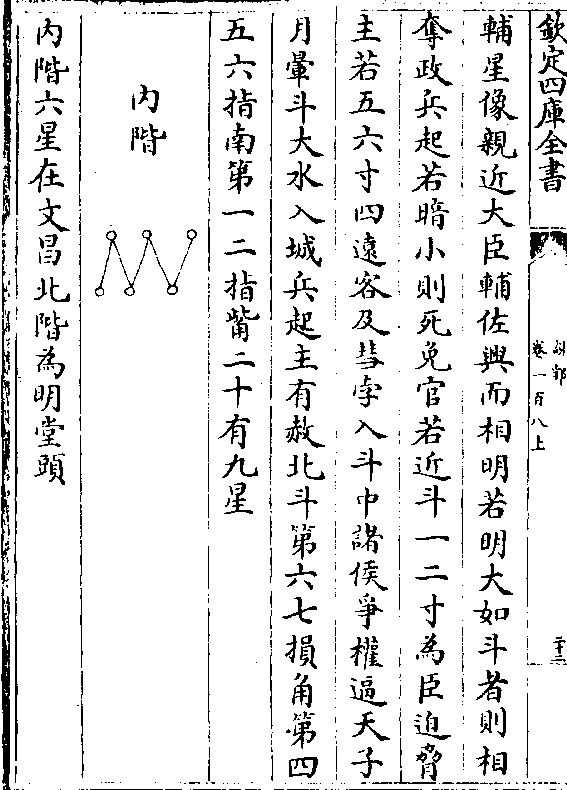 欽定四庫全書
說郛
卷一百八上
二十三
輔星像親近大臣輔佐興而相明若明大如斗者則相
奪政兵起若暗小則死免官若近斗一二寸為臣迫脅
主若五六寸四遠客及彗孛入斗中諸侯爭權逼天子
月暈斗大水入城兵起主有赦北斗第六七損角第四
五六指南第一二指觜二十有九星
內階
內階六星在文昌北階為明堂頭